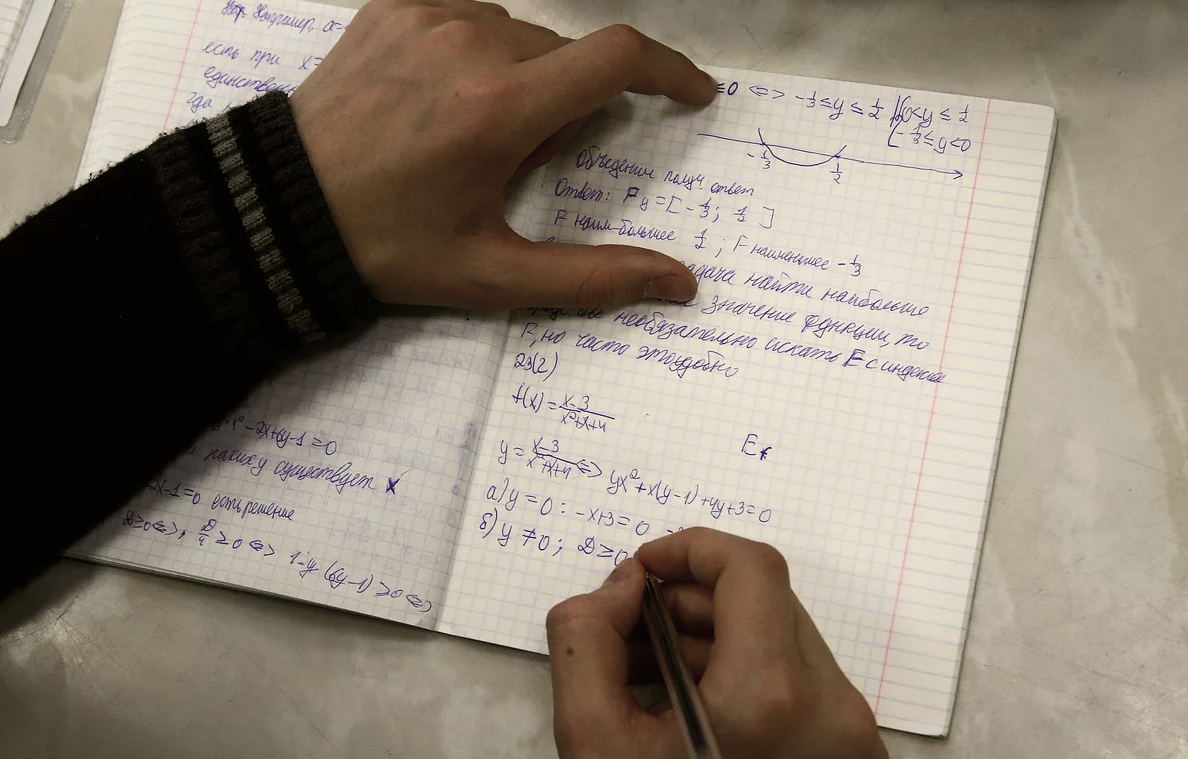 Например, a=
есть при x=
единственн
-2x+6y-1=0
существует x
2x-1=0 есть решение
D≥0 <=>, D/4 ≥0 <=> 1-y(6y-1)≥0 <=>
≤0 <=> -1/3≤y≤1/2 [0<y≤1/2
[-1/3≤y<0
-1/3 1/2
Объеденим получ ответ
Ответ: Fy=[-1/3; 1/2]
F наим-большее 1/2; F наименьшее -1/3
задача найти наибольшо
значение функции, то
необязательно искать E с индексом
F, но часто это удобно
23(2)
f(x)=x-3/x²+x+4
Ef
y=x-3/x²+x+4 <=> yx²+x(y-1)+4y+3=0
а) y=0: -x+3=0
б) y≠0; D≥0